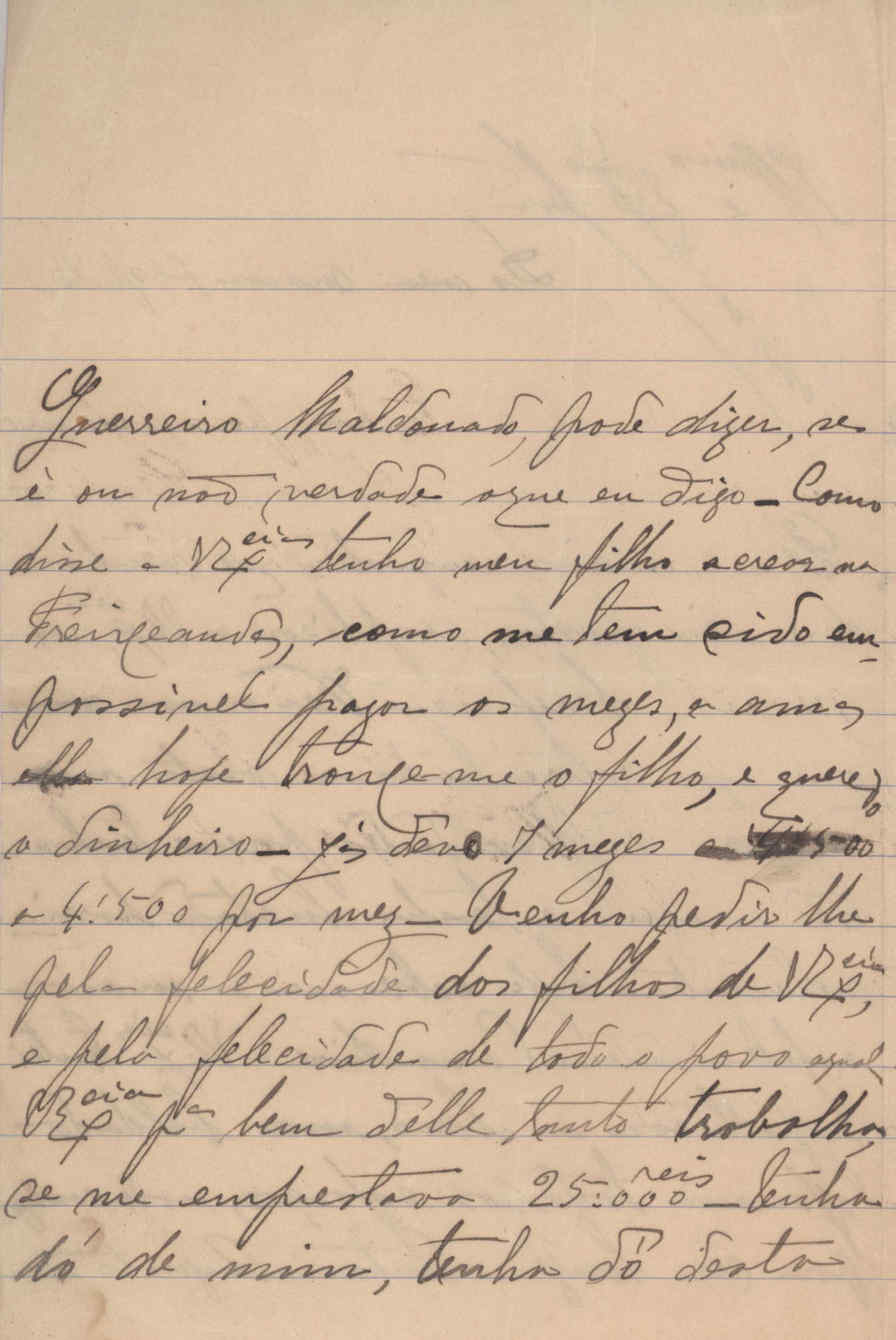 Guerreiro Maldonado, pode dizer, se
é ou não verdade oque eu digo – Como
disse a V Ex.cia tenho meu filho a crear na
como me tem sido em-
possivel pagar os mezes, a ama
hoje trouxe-me o filho, e quere
o dinheiro – já devo 7 mezes a 4:500
a 4:500 por mez – Venho pedir lhe
pela felecidade dos filhos de V Ex.cia,
e pela felecidade de todo o povo aqual
V Ex.cia p.a bem delle tanto trabalha,
se me emprestava 25:000 reis – tenha
dó de mim, tenha dó desta